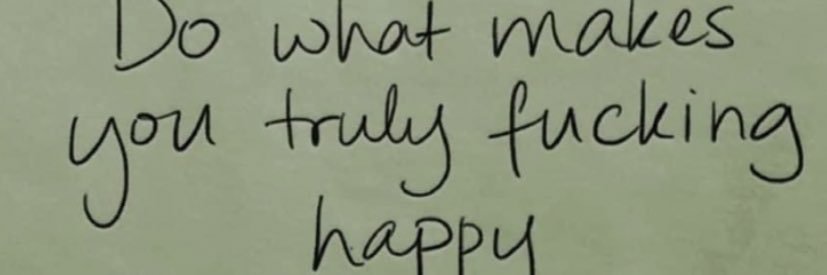 Do what makes
you truly fucking
happy